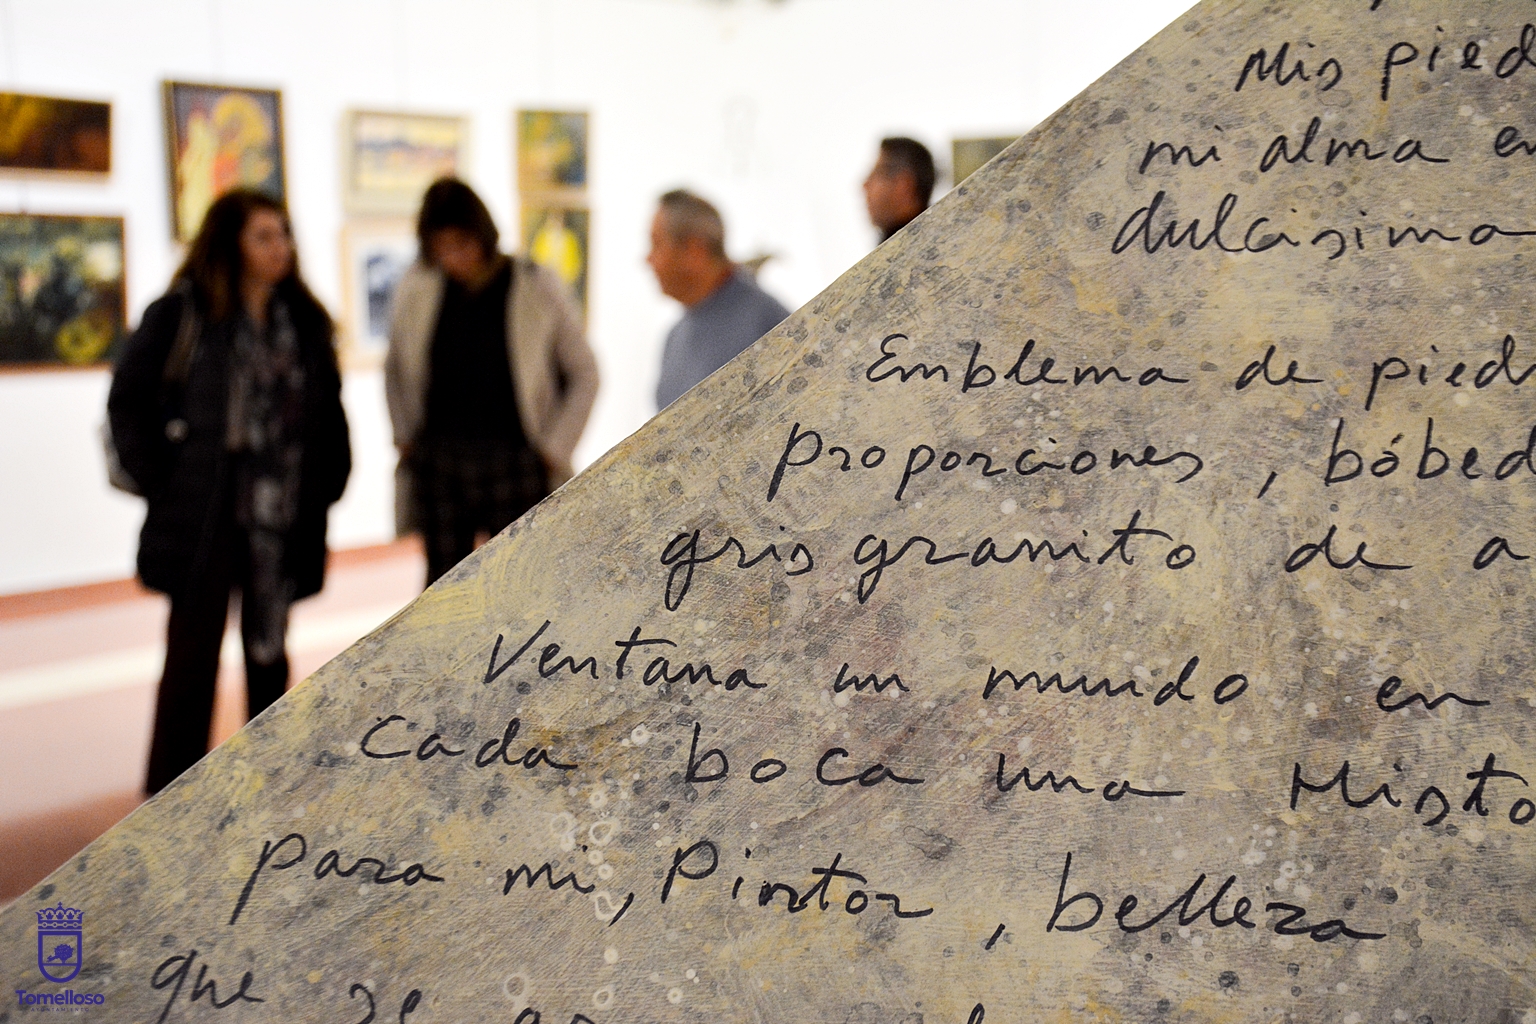 Mis pied
mi alma en
dulcisima
Emblema de pied
proporciones, bóbed
gris granito de a
Ventana un mundo en
Cada boca una Histo
para mi, Pintor, belleza
que se
Tomelloso
AYUNTAMIENTO